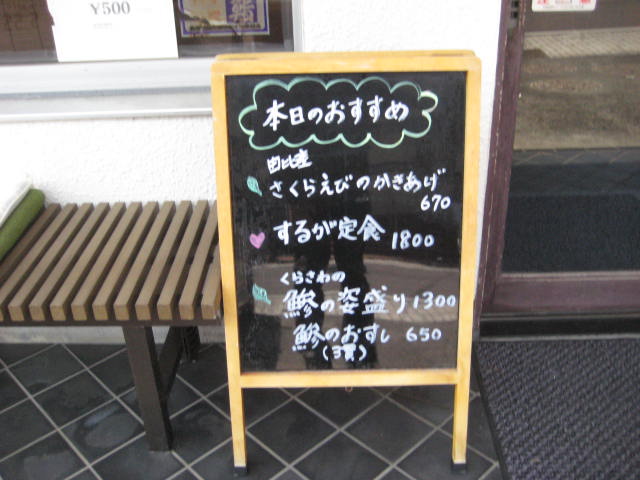 ¥500
本日のおすすめ
由比産
さくらえびのかきあげ
670
するが定食 1800
くらさわの
鯵の姿盛り 1300
鯵のおすし 650
(3貫)